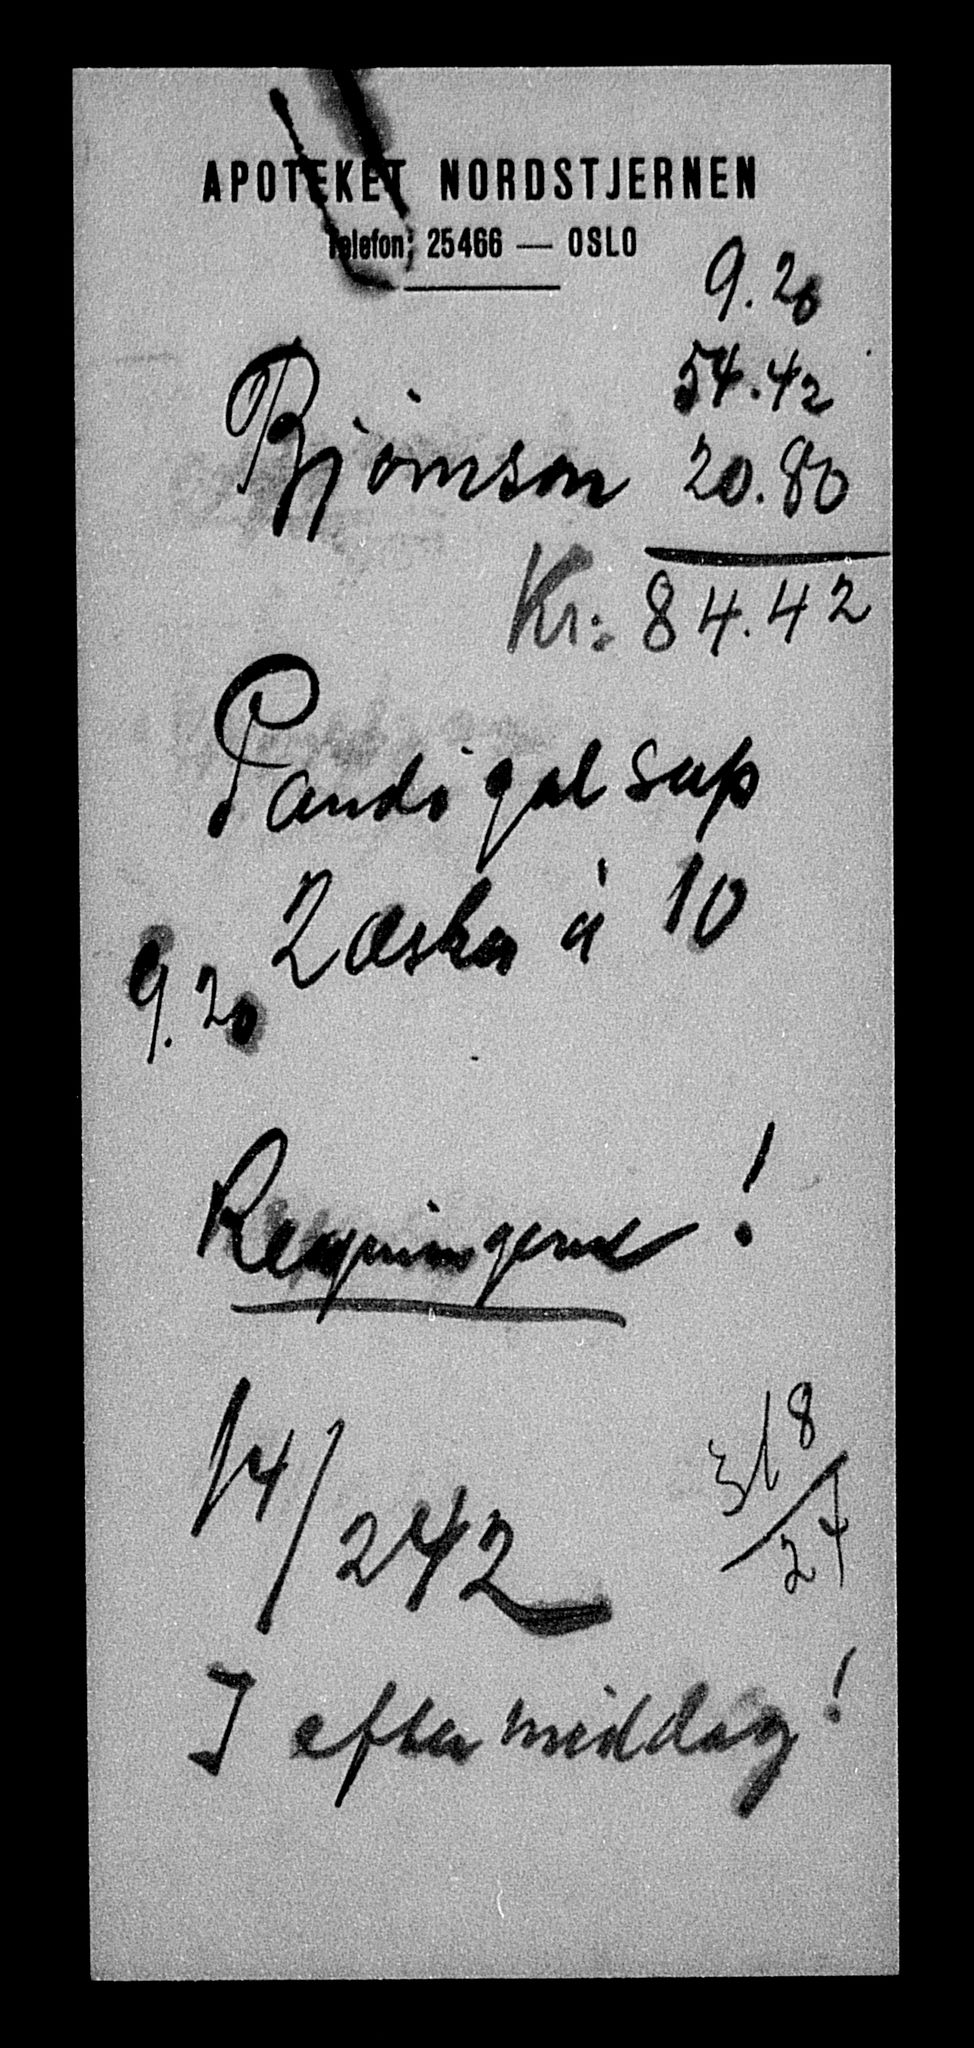 APOTEKET NORDSTJERNEN
Telefon; 25466 — OSLO
9.20
54.42
Bjørnson 20.80
Kr: 84.42
Pandigal sup
2 æsker à 10
9.20
Regningene !
14/242
318/24
I eftermiddag!